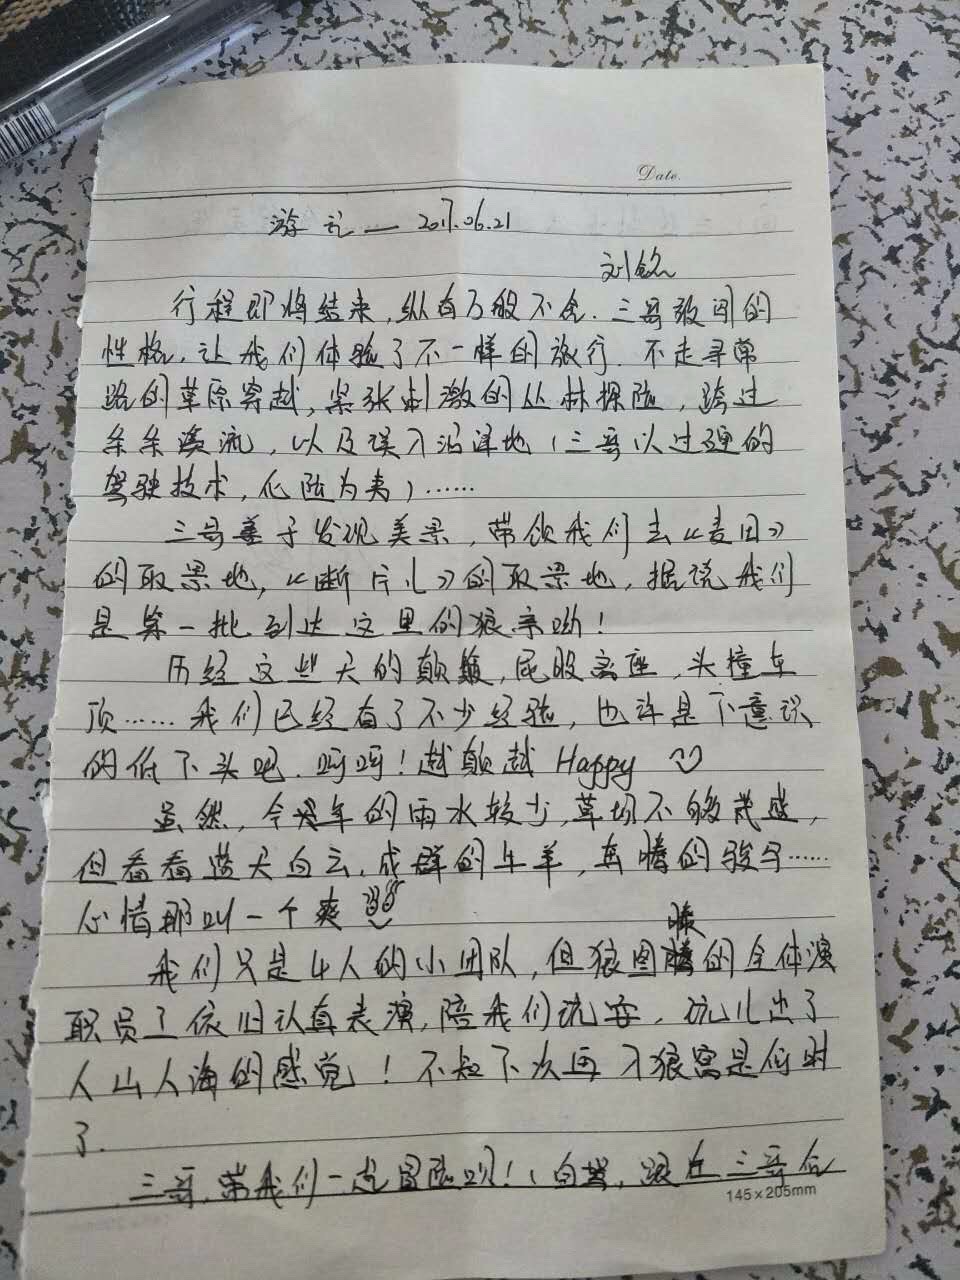 Date.
游记—2017.06.21
刘铭
行程即将结束,纵有万般不舍.三哥敢闯的
性格,让我们体验了不一样的旅行.不走寻常
路的草原穿越,紧张刺激的丛林探险,跨过
条条溪流,以及误入沼泽地(三哥以过硬的
驾驶技术,化险为夷)……
三哥善于发现美景,带领我们去《麦田》
的取景地,《断片儿》的取景地,据说我们
是第一批到达这里的狼亲呦!
历经这些天的颠簸,屁股离座,头撞车
顶……我们已经有了不少经验,也许是下意识
的低下头吧.呵呵!越颠越Happy
虽然,今年的雨水较少,草场不够茂盛,
但看看蓝天白云,成群的牛羊,奔腾的骏马……
心情那叫一个爽
我们只是4人的小团队,但狼图腾的全体演
职员工依旧认真表演,陪我们玩耍,玩儿出了
人山人海的感觉!不知下次再入狼窝是何时
了.
三哥,带我们一起冒险呗!(自驾,跟在三哥后
145×205mm